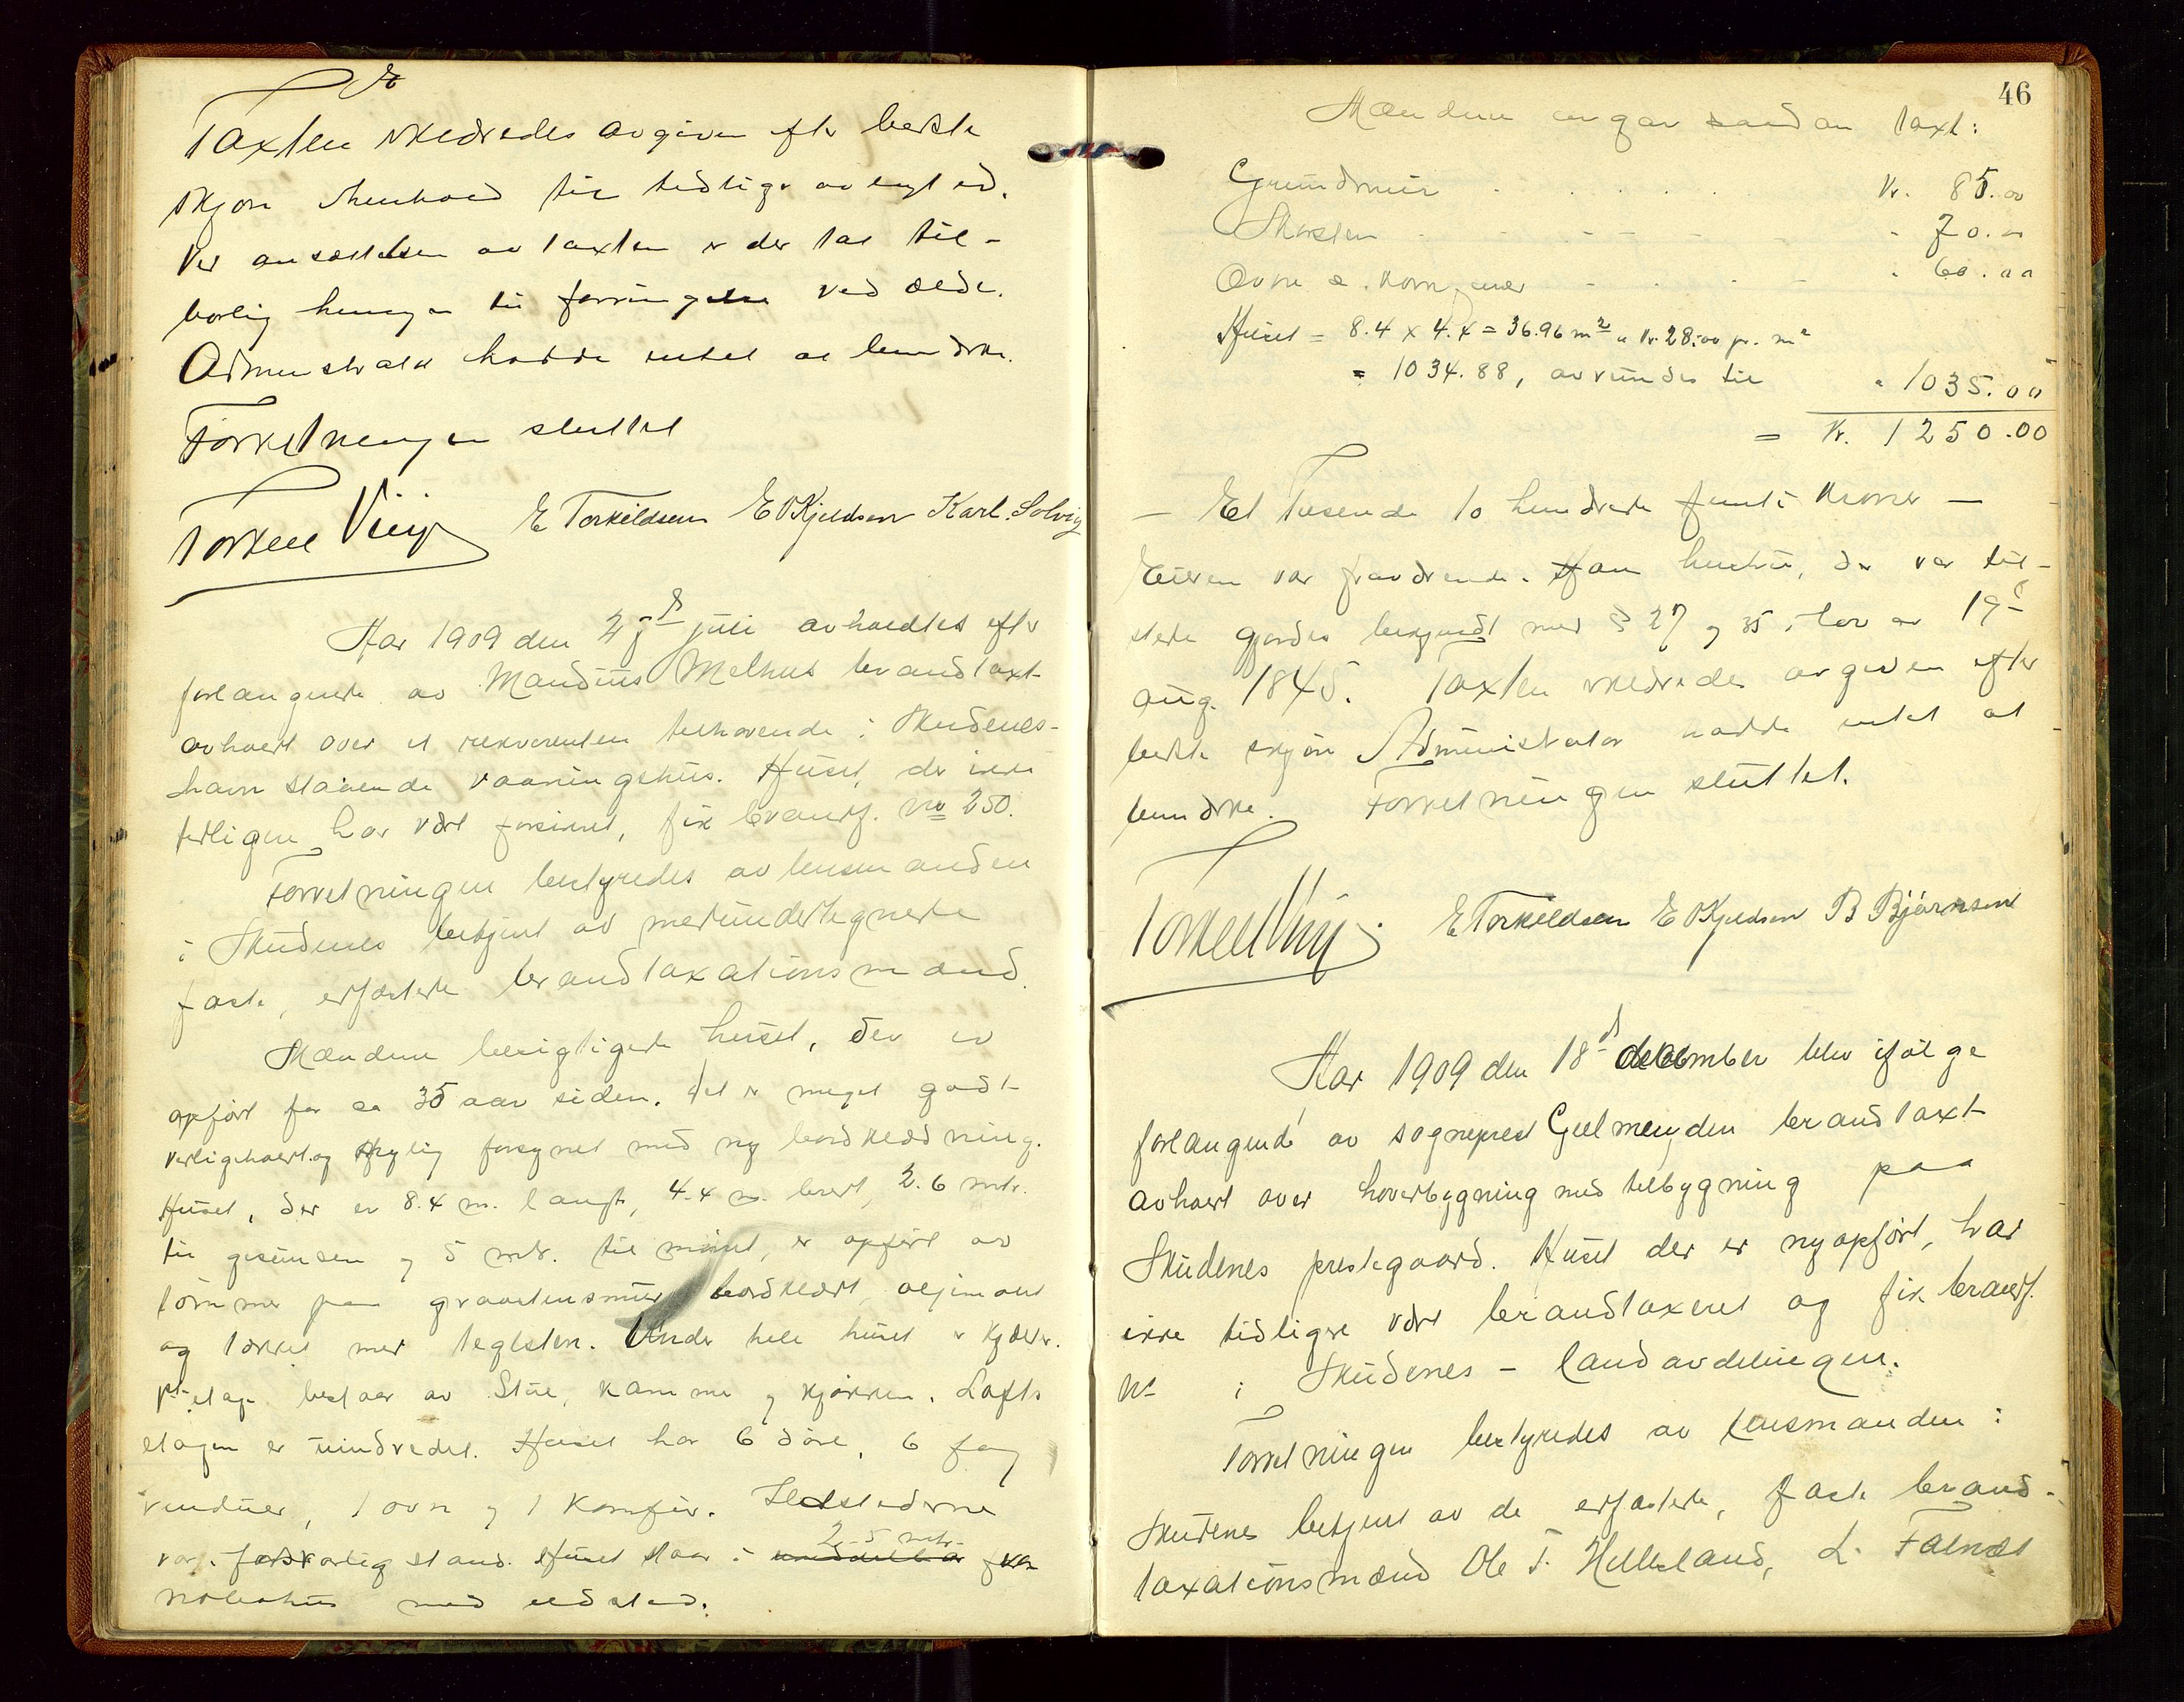 Taxten skedredes avgiven efter bedste
skjøn i henhold til tidliger avlagt ed.
Ved ansættelsen av taxten er der tat til-
børlig hensyn til forringelse ved ælde.
Administrator hadde intet at bemærke.
Forretningen sluttet
Torkell Viig E Torkildsen E O Kjeldsen Karl. Solvig
Aar 1909 den juli avholdtes efter
forlangende av Mandius Melhus brandtaxt
avholdt over et rekvirenten tilhørende i Skudenes-
havn staaende vaaningshus. Huset, der ikke
tidligere har vært forsikret, fik brandf. No 250.
Forretningen bestyredes av lensmanden
i Skudenes betjent av medundertegnede
faste, edfæstede brandtaxationsmænd.
Mændene besigtigede huset, der er
opført for ca 35 aar siden. Det er meget godt
vedligeholdt og nylig forsynet med ny bordklædning.
Huset, der er 8.4 m. langt, 4.4 m. bredt, 2.6 mtr.
til gesimsen og 5 mtr. til mønet, er opført av
tømmer paa graastensmur, bordklædt, oljemalt
og tækket med teglsten. Under hele huset er kjelder.
1ste etage bestaar av Stue, kammer og kjøkken. Lofts
etagen er uindredet. Huset har 6 døre, 6 fag
vinduer, 1 ovn og 1 komfur. Ildstederne
var i forsvarlig stand. Huset staar i 2.5 mtr. fra
nabohus med ildsted.
46
Mændene avgav saadan taxt:
Grundmur . . . . . Kr. 85.00
Skorsten - - - - - - " 70.00
Ovne o. komfurer - . . . " 60.00
Huset = 8.4 x 4.4 = 36.96 m² a Kr. 28.00 pr. m²
= 1034.88, avrundes til " 1035.00
= Kr. 1250.00
— Et Tusende to hundrede femti Kroner —
Eieren var fraværende. Hans hustru, der var til-
stede gjordes bekjendt med § 27 og 35 i lov av 19de
aug. 1845. Taxten skedredes avgiven efter
bedste skjøn. Administrator hadde intet at
bemærke. Forretningen sluttet.
Torkell Viig. E Torkildsen E O Kjeldsen B Bjørnsen
Aar 1909 den 18de december blev ifølge
forlangende av sogneprest Gjelmeyden brandtaxt
avholdt over hovedbygning med tilbygning paa
Skudenes prestegaard. Huset der er nyopført, har
ikke tidligere vært brandtaxeret og fik brandf.
No i Skudenes - landavdelingen.
Forretningen bestyredes av lensmanden i
Skudenes betjent av de edfæstede, faste brand-
taxationsmænd Ole T. Helleland, L. Falnes